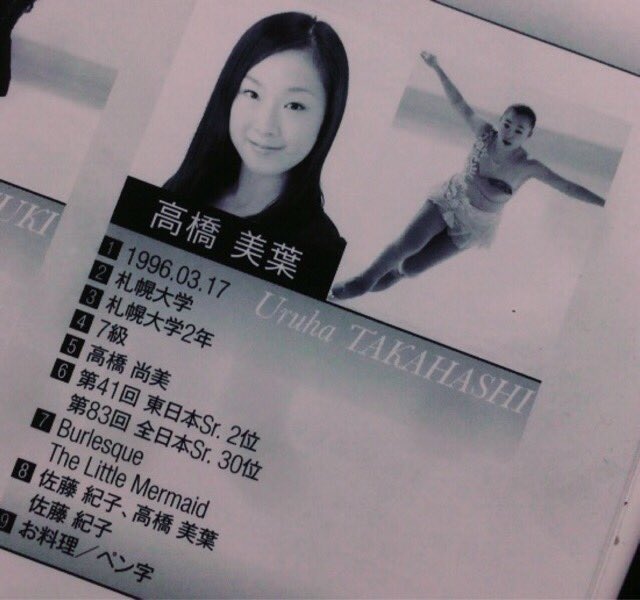 UKI
高橋 美葉
Uruha TAKAHASHI
1 1996.03.17
2 札幌大学
3 札幌大学2年
4 7級
5 高橋 尚美
6 第41回 東日本Sr. 2位
第83回 全日本Sr. 30位
7 Burlesque
The Little Mermaid
8 佐藤 紀子、高橋 美葉
佐藤 紀子
9 お料理／ペン字